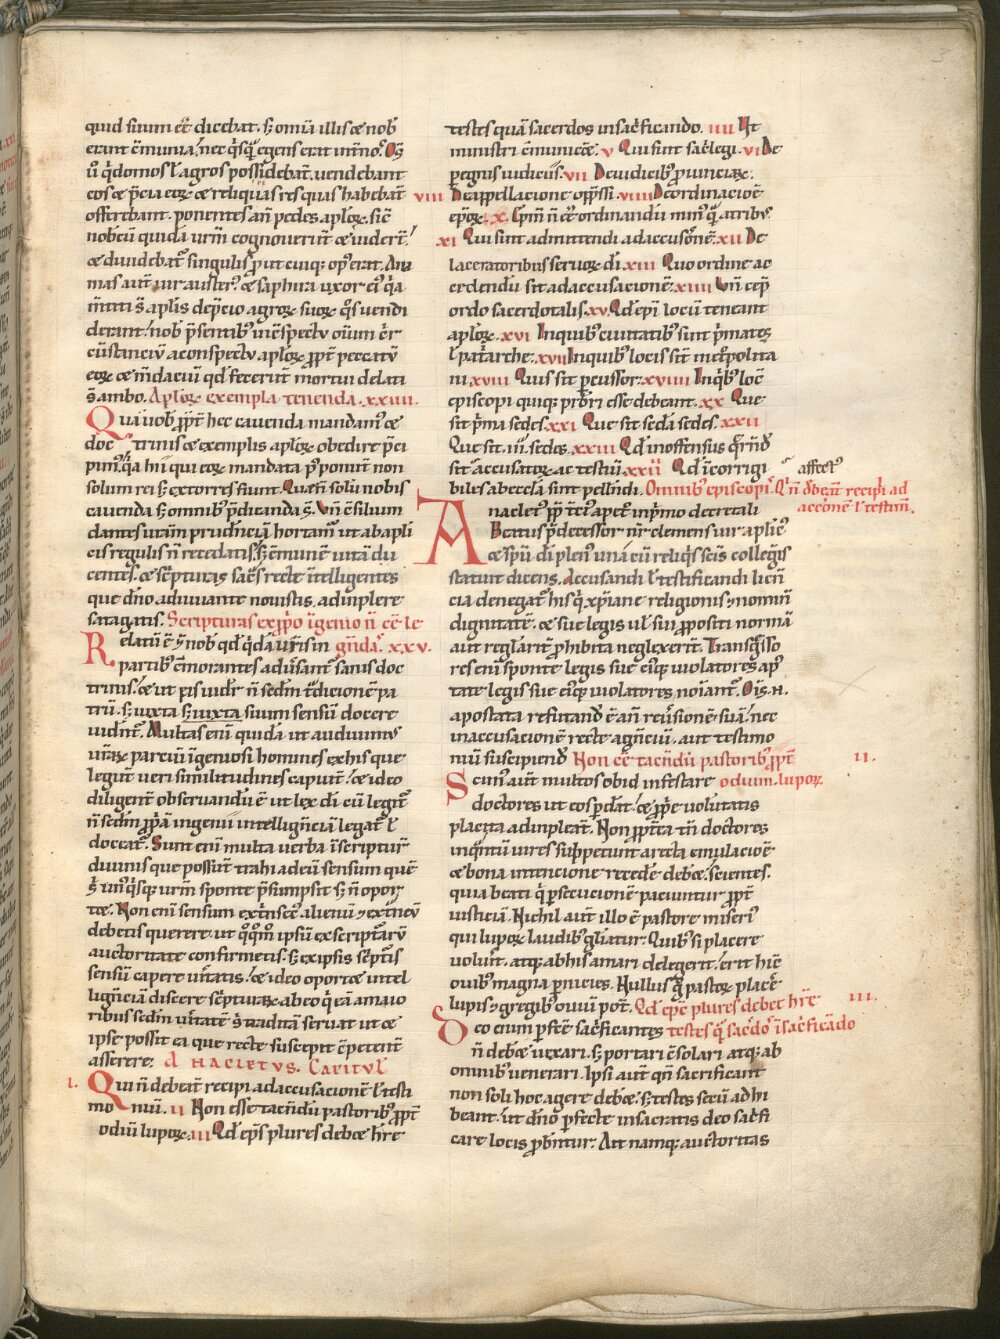 quid suum eēt dicebat. s; om̄ia illis ce nob̄
erant c̄munia. nec q̄sq̄ egens erat int̄ no᷒. Q̄q̄
ū q̄ domos ł agros possidebāt. uendebant
eos ce p̄cia eoꝝ ce reliquas res quas habebāt
offerebant. ponentes an̄ pedes aploꝝ. sic̄
nob̄cū quidā urm̄ cognouerūt ce uiderūt.
ce diuidebāt singulis prout cuiq; op᷒ erat. Ana
nias aut̄ uir austerꝰ. ce saphira uxor eiꝰ q̄a
m̄titi s̄ aplis de p̄cio agroꝝ suoꝝ q̄s uendi
derant. nob̄ p̄sentib᷒ in c̄spectu om̄ium c̄r
cūstanciū a conspectu aploꝝ ꝓpt̄ peccatū
eoꝝ ce m̄daciū qd̄ fecerūt mortui delati
s̄ ambo. Aploꝝ exempla tenenda. xxiiii.
Qua uob̄ ꝓpt̄ hec cauenda mandam᷒ ce
doctrinis ce exemplis aploꝝ obedire p̄ci
pim᷒. q̄a hii qui eoꝝ mandata p᷒ponūt non
solum rei s; extorres fiunt. Quen̄ solū nobis
cauenda s; omnib᷒ p̄dicanda s̄. Vn̄ c̄silium
dantes uitam prudn̄ciā hortam᷒ ut ab apli
cis regulis n̄ recedatis. s; c̄munē uitā du
centes. ce sc̄pturas sac̄s recte īntelligentes
que dn̄o adiuuante nouistis. adinplere
satagatis. Scripturas ex ꝓprio īgenio n̄ ce. le
Relatū ē ⁊ nob̄ qd̄ q̄dā uris in gn̄da. xxv.
partib᷒ c̄morantes adūsant̄ sanis doc
trinis. ce ut eis uidr̄ n̄ sedm̄ t̄dicionē pa
trū. s; iuxta s; iuxta suum sensū docere
uidn̄t. Multas enī quidā ut audiuim᷒
ur̄aꝝ parciū īgeniosi homines ex his que
legūt ueri similitudines capiunt. ce ideo
diligent̄ obseruandū ē ut lex di cū legit̄
n̄ sedm̄ ꝓpriā ingenii intellign̄ciā legat̄ ł
doceat̄. Sunt enī multa uerba ī scriptur̄
diuinis que possūt trahi ad eū sensum quē
s̄ un᷒q̄sq; urm̄ sponte p̄sumpsit s; n̄ opor
tce. Non enī sensum ext̄nsec᷒ alienū ⁊ ext̄neū
debetis querere. ut q̄q̄m̄ ipsū ex scriptarū
auctoritate confirmetis. s; ex ipsis sc̄ptis
sensū capere u̇itatis. ce ideo oportce intel
lign̄ciā discere sc̄pturaꝝ ab eo q̄ eā a maio
ribus sedm̄ u̇itatē s̄ traditā seruat ut ce
ipse possit ea que recte suscepit c̄petent̄
asserere. ANACLETVS. Capitul
i. Qui n̄ debeāt recipi ad accusationē ł testi
monii. ii Non esse tacn̄dū pastorib᷒ ꝓpt̄
odiū lupoꝝ. iii Qd̄ ep̄s plures debce h̄re
testes quā sacerdos in sac̄ficando. iiii Vt
ministri c̄municē. v Qui sunt sac̄legi. vi De
pegrinis iudiciis. vii De iudicib᷒ ꝓuinciaꝝ.
viii De appellacione opp̄ssi. viiii De ordinacioē
ep̄oꝝ. x. Ep̄m n̄ ce ordinandū min᷒ q̄ a trib᷒
xi Qui sunt admittendi ad accusōnē. xii De
laceratoribus seruoꝝ di. xiii Quo ordine ac
cedendū sit ad accusacionē. xiiii Vn̄ cep̄
ordo sacerdotalis. xv Qd̄ ep̄i locū teneant
aploꝝ. xvi In quib᷒ ciuitatib᷒ sunt p̄mates
ł pat̄arche. xvii In quib᷒ locis sint met̄polita
ni. xviii Quis sit p̄cussor. xviiii In q̄b᷒ loc̄
episcopi quiq; prb̄ri esse debeant. xx Que
sit p̄ma sedes. xxi Que sit sc̄da sedes. xxii
Que sit. iii. sedes. xxiii Qd̄ inoffensus q̄rnd᷒
sit accusatoꝝ ac testiū. xxii Qd̄ īcorrigi
biles ab eccla sint pellendi. Omnib᷒ episcopi᷒. Q̄ n̄ dbean̄ recipi ad
affect᷒
accōnē ł testim̄.
Anaclet᷒ pp̄ t̄ci᷒ ap.c. in p̄mo decretali
Beatus p̄decessor nr̄ clemens uir aplic᷒
ce sp̄u di plen᷒ una cū reliq̄s sc̄is collegis
statuit dicens. Accusandi ł testificandi licn̄
cia denegat̄ his q̄ xp̄iane religionis ⁊ nominī
dignitatē. ce sue legis uł sui ꝓpositi normā
aut regłarit̄ ꝓhibita neglexerit. Transgr̄sso
res enī sponte legis sue eiq; uiolatores ap᷒
tate legis sue eiq; uiolatores noīant̄. Oīs. n.
apostata refutand᷒ ē an̄ reu̇sionē suā. nec
in accusacionē recte agn̄ciū. aut testimo
niū suscipiend᷒ Non cē tacn̄dū pastorib᷒ ꝓpt̄ ii.
Scim᷒ aut̄ multos ob id infestare odium. lupoꝝ
doctores ut eos p̄dāt. ce ꝓprie uolūtatis
placita adinpleāt. Non ꝓpt̄ea tn̄ doctores
inq̄ntū uires suppetunt a recta emulacioē
ce bona intencione recede debce. scientes.
quia beati q̄ p̄secucionē paciuntur ꝓpt̄
iusticiā. Nichil aut̄ illo ē pastore miseri᷒
qui lupoꝝ laudib᷒ głiatur. Quib᷒ si placere
uolūit. atq; ab his amari delegerit. erit hic̄
ouib᷒ magna p̄nicies. Nullus g̊ pastoꝝ placē
lupis ⁊ gregib᷒ ouiū pot̄. Qd̄ ep̄c plures debet hr̄e iii.
Deo enim p̄fc̄e sac̄ficantes testes q̄ sac̄do᷒ ī sac̄ficādo
n̄ debce uexari. s; portari c̄solari atq; ab
omnib᷒ uenerari. Ipsi aut̄ qn̄ sacrificant
non soli hoc agere debce. s; testes secū adhi
beant. ut dn̄o p̄fecte in sacratis deo sac̄fi
care locis ꝓbentur. Ait namq; auctoritas